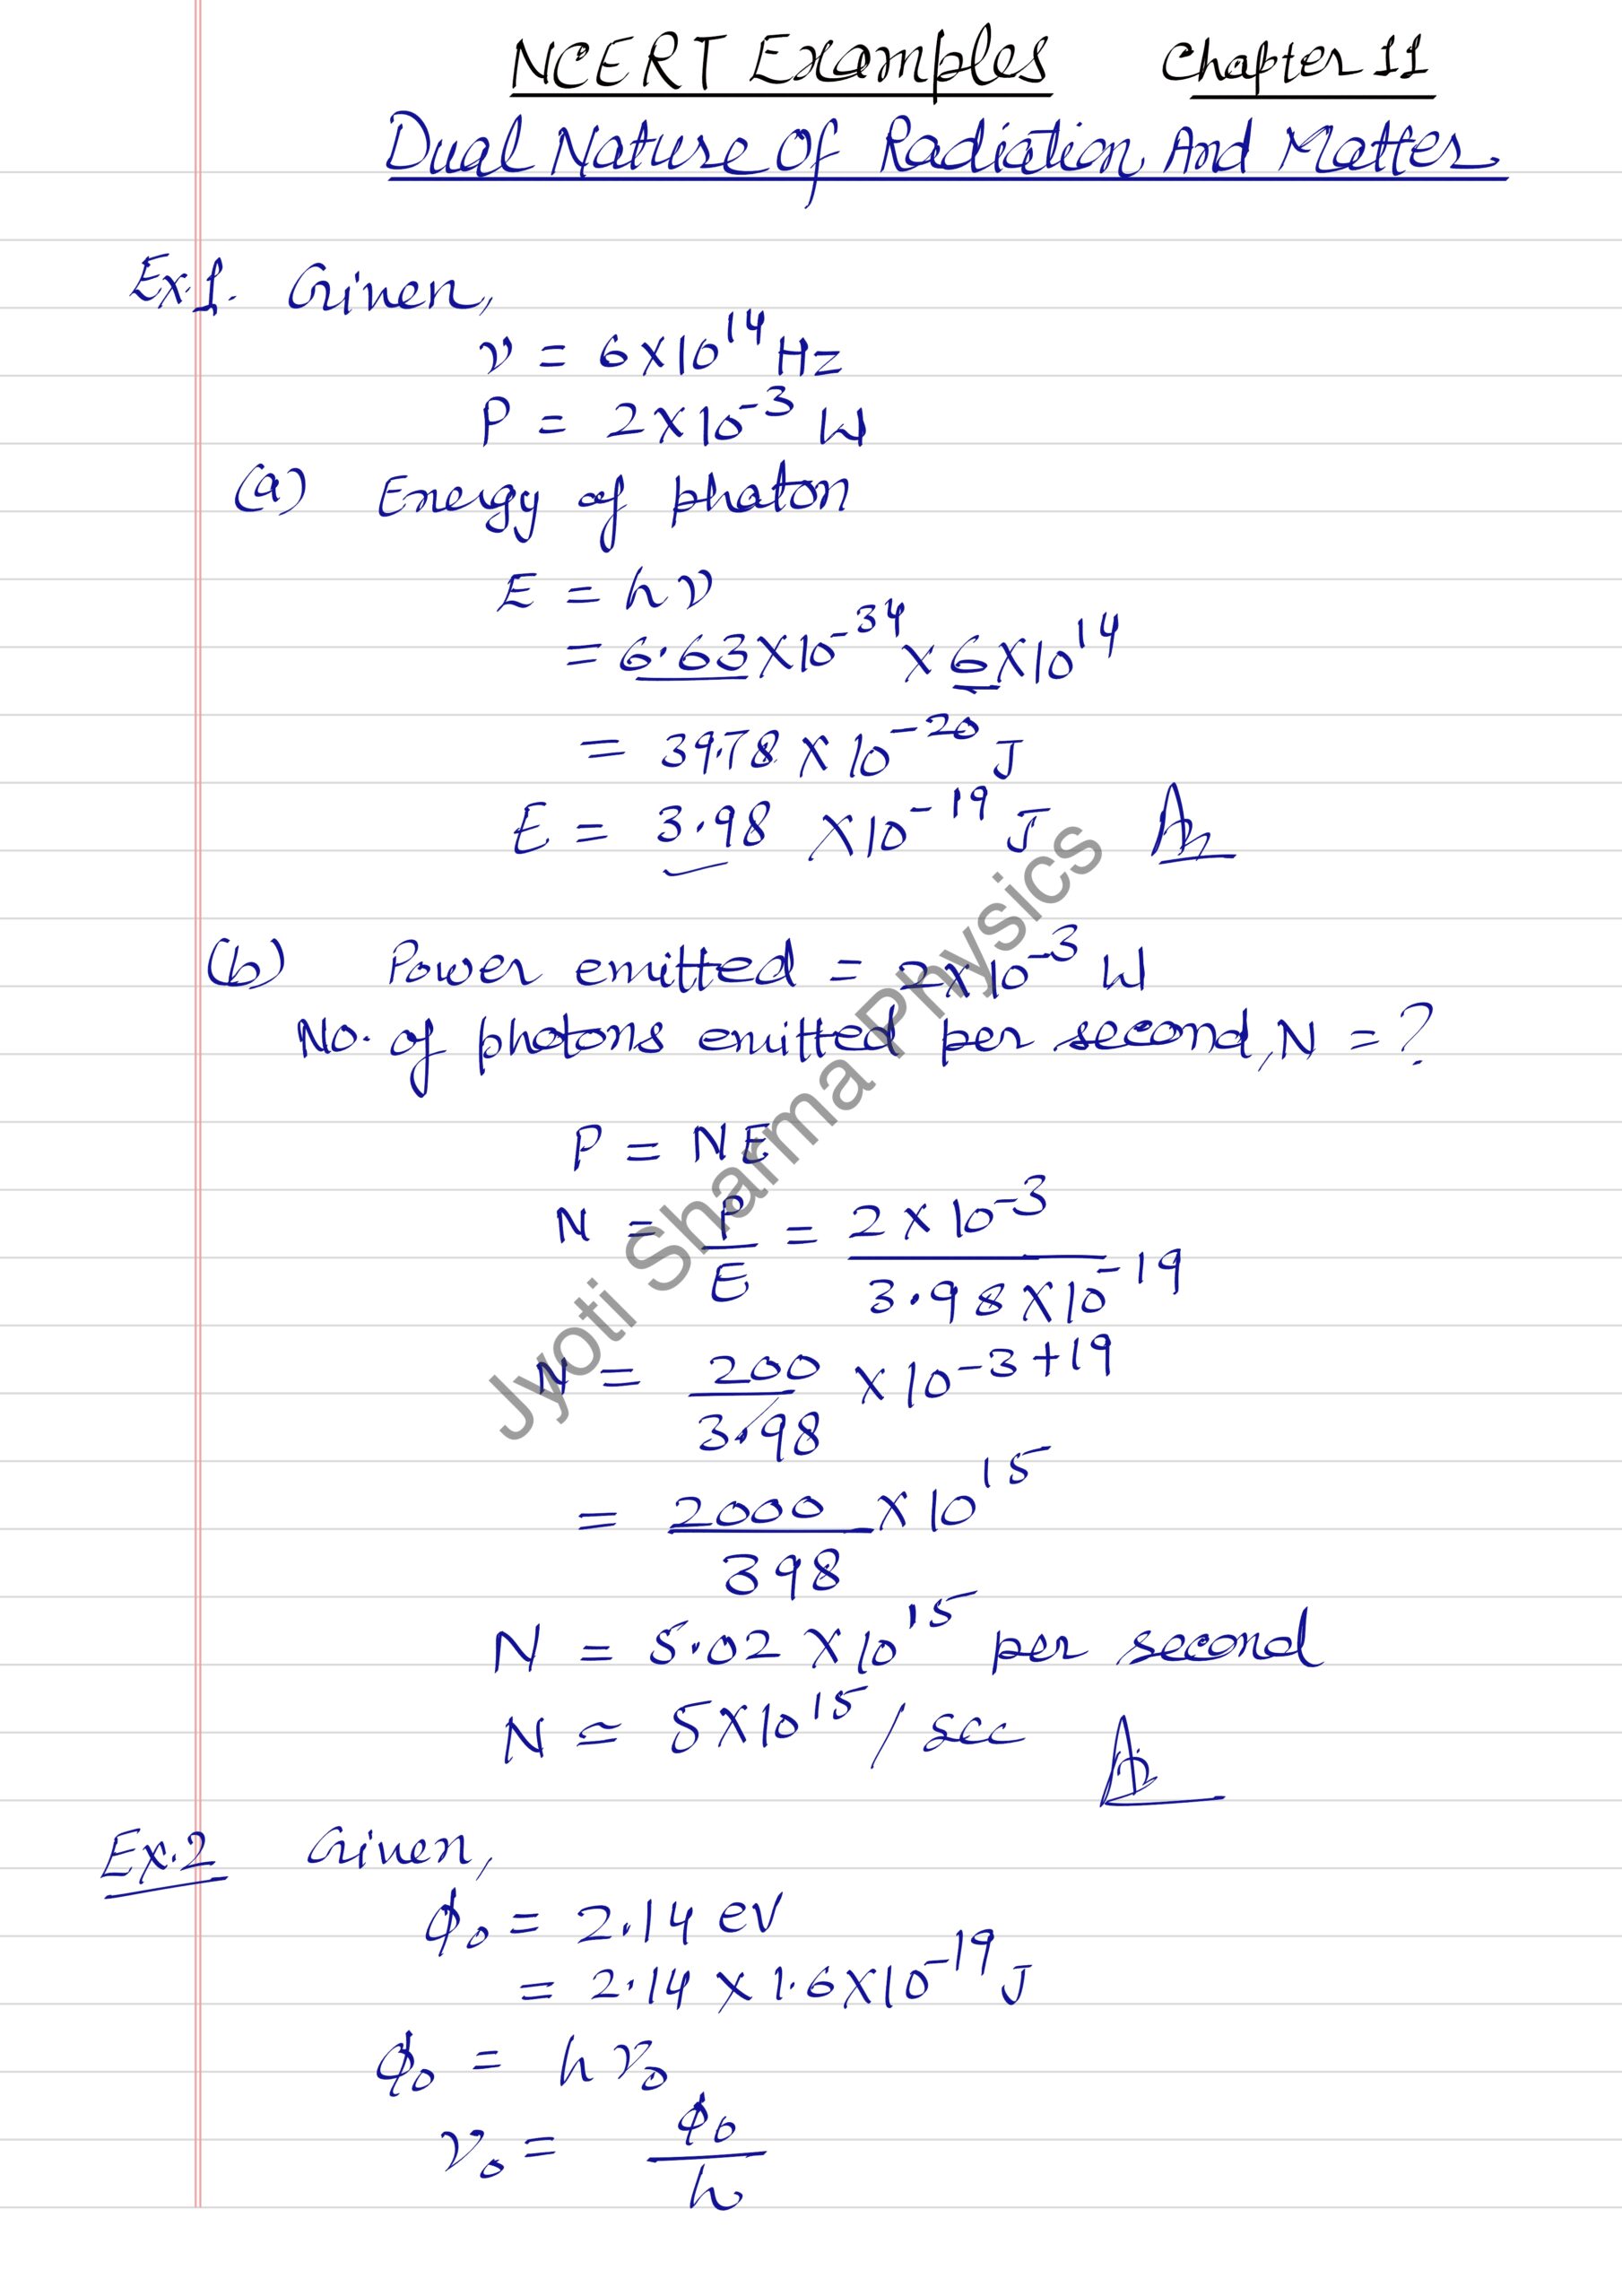 NCERT Examples Chapter 11
Dual Nature Of Radiation And Matter
Ex.1. Given,
ν = 6×10¹⁴ Hz
P = 2×10⁻³ W
(a) Energy of photon
E = hν
= 6.63×10⁻³⁴ × 6×10¹⁴
= 39.78 × 10⁻²⁰ J
E = 3.98 ×10⁻¹⁹ J Ans
(b) Power emitted = 2×10⁻³ W
No. of photons emitted per second, N = ?
P = NE
N = P/E = 2×10⁻³ / 3.98×10⁻¹⁹
N = 200/3.98 ×10⁻³⁺¹⁹
= 2000/398 ×10¹⁵
N = 5.02 ×10¹⁵ per second
N ≃ 5×10¹⁵ / sec Ans
Ex.2 Given,
ϕ₀ = 2.14 ev
= 2.14 × 1.6×10⁻¹⁹ J
ϕ₀ = hν₀
ν₀ = ϕ₀/h
Jyoti Sharma Physics